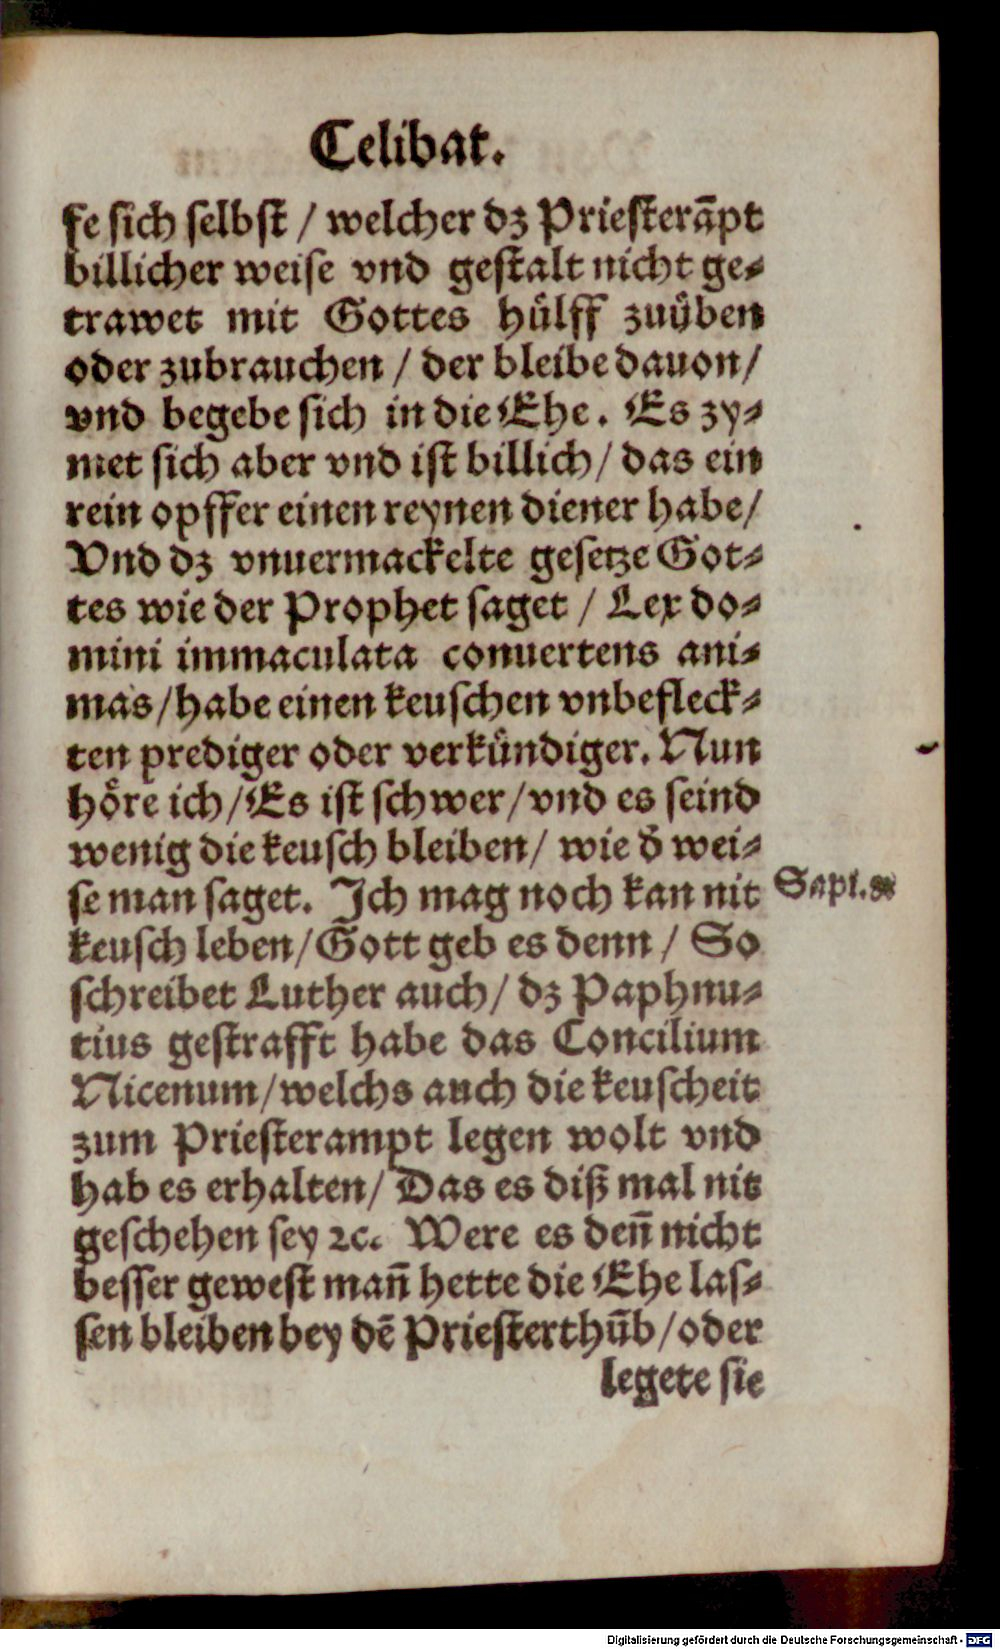 Celibat.
fe sich selbst / welcher dz Priesterāpt
billicher weise vnd gestalt nicht ge⸗
trawet mit Gottes huͤlff zuuͤben
oder zubrauchen / der bleibe dauon /
vnd begebe sich in die Ehe. Es zy⸗
met sich aber vnd ist billich / das ein
rein opffer einen reynen diener habe /
Vnd dz vnuermackelte gesetze Got⸗
tes wie der Prophet saget / Lex do⸗
mini immaculata conuertens ani⸗
mas / habe einen keuschen vnbefleck⸗
ten prediger oder verkuͤndiger. Nun
hoͤre ich / Es ist schwer / vnd es seind
wenig die keusch bleiben / wie d̄ wei⸗
se man saget. Ich mag noch kan nit
Sapi. 8
keusch leben / Gott geb es denn / So
schreibet Luther auch / dz Paphnu⸗
tius gestrafft habe das Concilium
Nicenum / welchs auch die keuscheit
zum Priesterampt legen wolt vnd
hab es erhalten / Das es diß mal nit
geschehen sey ꝛc. Were es deñ nicht
besser gewest mañ hette die Ehe las⸗
sen bleiben bey dē Priesterthūb / oder
legete sie
Digitalisierung gefördert durch die Deutsche Forschungsgemeinschaft - DFG